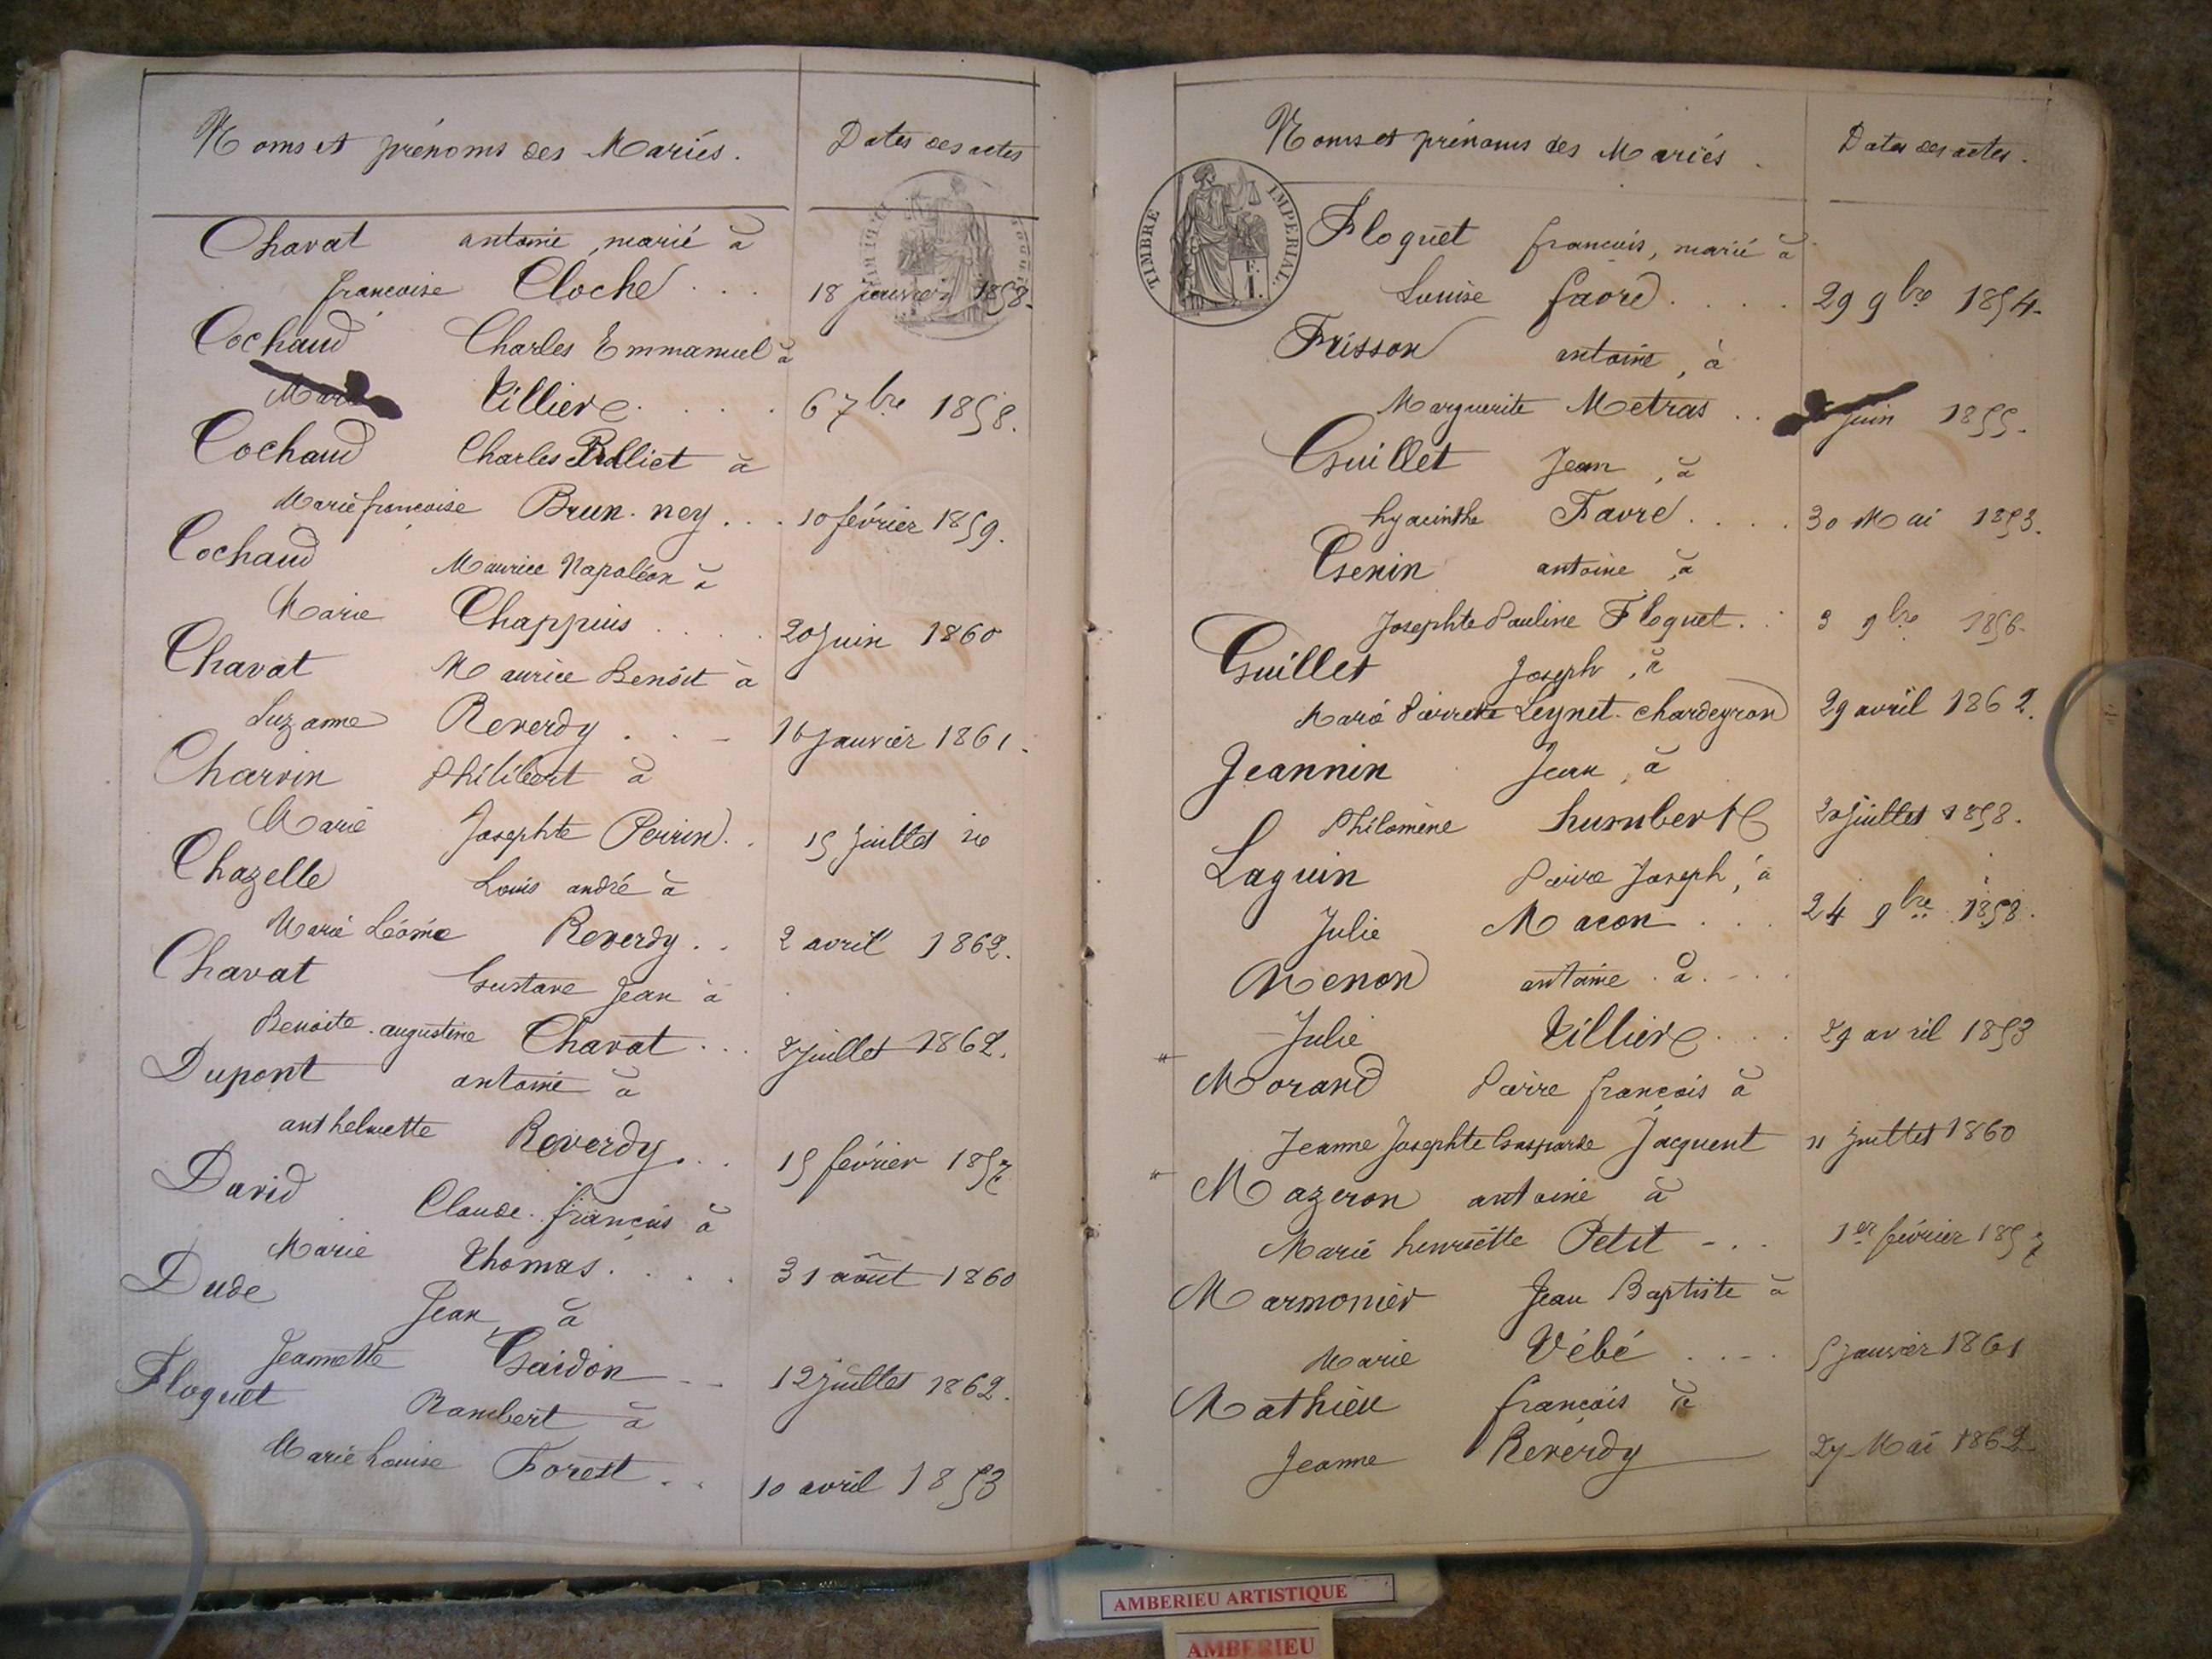 Noms et prénoms des Mariés. Dates des actes
Chavat antoine, marié à
françoise Cloche . . . 18 janvier 1858.
Cochaud Charles Emmanuel à
Marie Tillier . . . . 6 7bre 1858.
Cochaud Charles à
Marie françoise Brun-ney . . . 10 février 1859.
Cochaud Maurice Napoléon à
Marie Chappuis . . . . 20 Juin 1860
Chavat Maurice Benoit à
Suzanne Reverdy . . - 16 Janvier 1861.
Charvin Philibert à
Marie Josephte Perrin. . 15 Juillet
Chazelle Louis andré à
Marie Reverdy . . 2 avril 1862.
Chavat Gustave Jean à
Benoite-augustine Chavat . . . 2 Juillet 1862.
Dupont antoine à
anthelmette Reverdy . . . 15 février 1857
David Claude-françois à
Marie Thomas . . . . 31 août 1860
Dude Jean, à
Jeannette Gaidon - - 12 Juillet 1862.
Floquet Rambert à
Marie Louise Forest . . 10 avril 1853
Noms et prénoms des Mariés . Dates des actes .
TIMBRE IMPERIAL.
Floquet françois, marié à
Louise favre . . . . 29 9bre 1854.
Frisson antoine, à
Marguerite Metras . . Juin 1855.
Guillet Jean, à
hyacinthe Favre . . . . 30 Mai 1853.
Genin antoine, à
Josephte Pauline Floquet . . 3 9bre 1856.
Guillet Joseph, à
Marie Pierrette Leynet-chardeyron 29 avril 1862.
Jeannin Jean, à
Philomène humbert 20 Juillet 1858.
Laguin Pierre Joseph, à
Julie Macon . . . 24 9bre 1858.
Menon antoine à . - . .
Julie Tillier . . . . 29 avril 1853
Morand Pierre françois à
Jeanne Josephte Gasparde Jacquent 11 Juillet 1860
Mazeron antoine à
Marie henriette Petit - . . 1er février 1857
Marmonier Jean Baptiste à
Marie Vébé . . - . 5 Janvier 1861
Mathieu françois à
Jeanne Reverdy 27 Mai 1862
AMBERIEU ARTISTIQUE
AMBERIEU